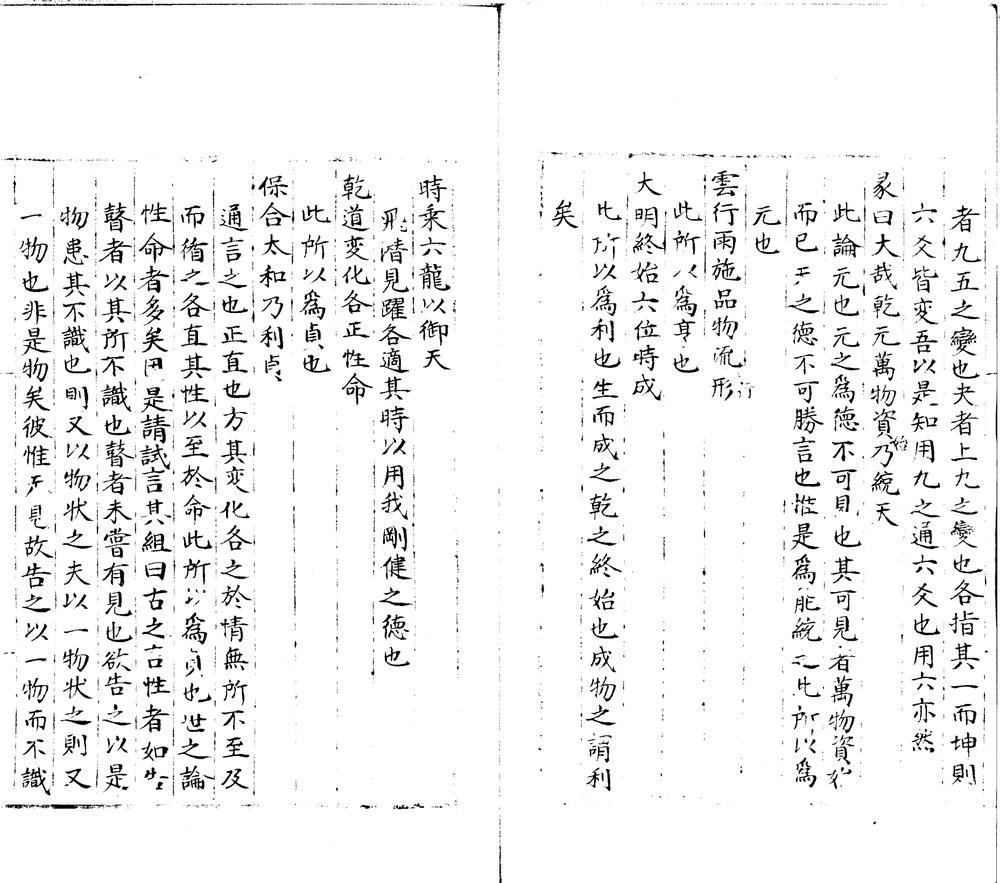 者九五之變也夬者上九之變也各指其一而坤則
六爻皆変吾以是知用九之通六爻也用六亦然
彖曰大哉乾元萬物資始乃統天
此論元也元之爲德不可見也其可見者萬物資始
而已天之德不可勝言也惟是爲能統之此所以爲
元也
雲行雨施品物流形
此所以爲亨也
大明終始六位時成
此所以爲利也生而成之乾之終始也成物之謂利
矣
時乘六龍以御天
飛潛見躍各適其時以用我剛健之德也
乾道変化各正性命
此所以爲貞也
保合太和乃利貞
通言之也正直也方其変化各之於情無所不至及
而循之各直其性以至於命此所以爲貞也世之論
性命者多矣因是請試言其粗曰古之言性者如告
瞽者以其所不識也瞽者未嘗有見也欲告之以是
物患其不識也則又以物状之夫以一物状之則又
一物也非是物矣彼惟無見故告之以一物而不識